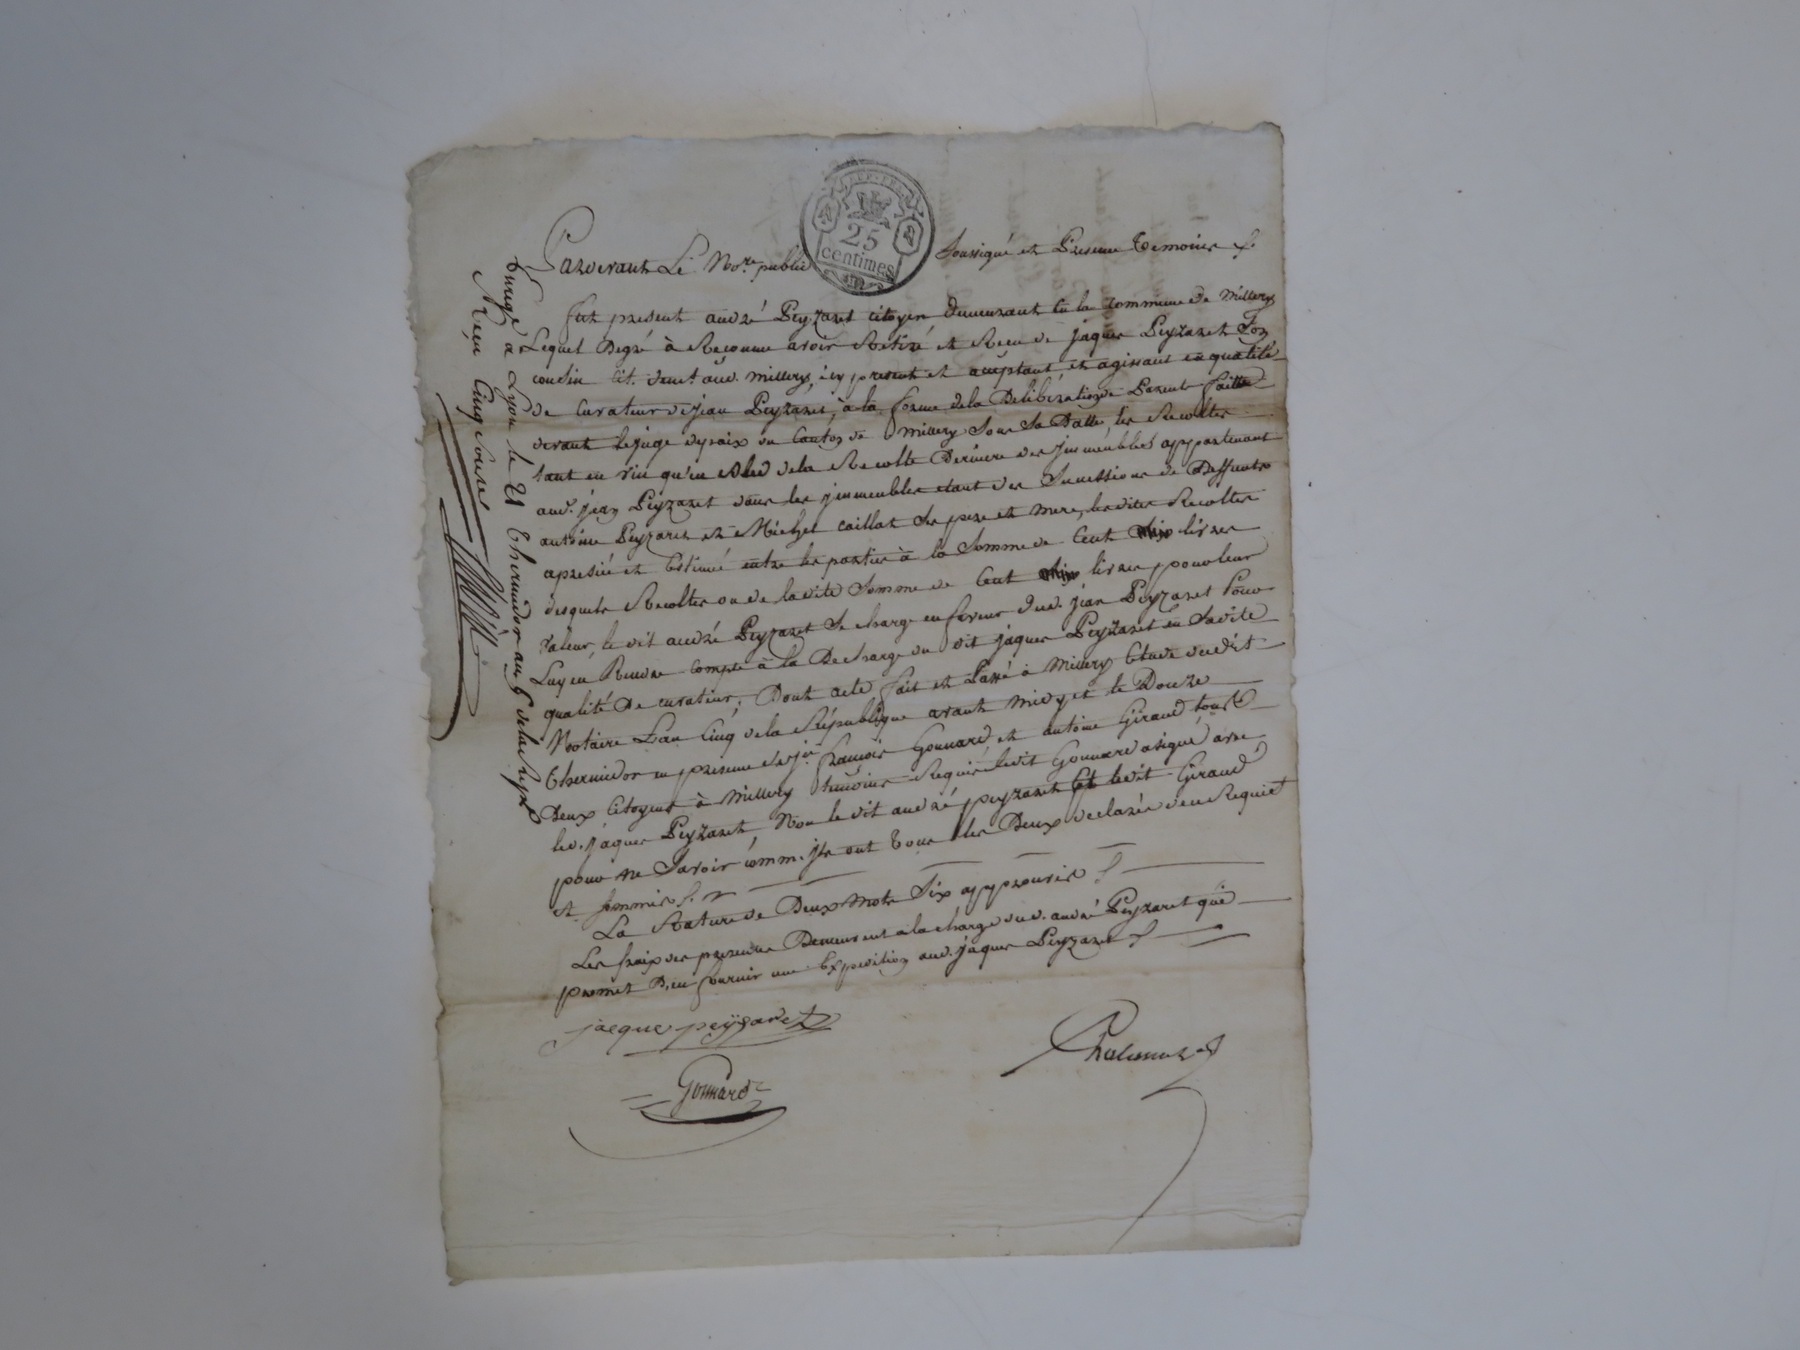 25
centimes
Pardevant Le No.re public Soussigné et Presence temoins
fut présent andré Peyzaret citoyen demeurant en la commune de Millery
Lequel Degré à Reconnu avoir Retiré et Receu de jaques Peyzaret son
cousin Cit. demt aud. Millery, icy present et acceptant et agissant en qualité
de Curateur de jean Peyzaret, à la forme de la Deliberation de Parent faitte
devant le juge de paix du Canton de Millery Sous Sa Datte, les Recoltes
tant en vin qu'en Bled de la Recolte Derniere des jmmeubles appartenant
aud. jean Peyzaret dans les jmmeubles etant des Successions de Deffunts
antoine Peyzaret et Michel caillat Ses pere et mere, lesdites Recoltes
apresiée et Estimée entre les parties à la Somme de Cent livres
desquels Recoltes ou de la dite Somme de Cent livres pour leur
valeur, le dit andré Peyzaret Se charge en faveur dud. jean Peyzaret Pour
Luy en Rendre compte à la Decharge du dit jaques Peyzaret en Sa dite
qualité De curateur; Dont acte fait et Passé à Millery Etude dudit
Notaire L'an Cinq de la République avant midy et le Douze
thermidor en presence de françois Gonnard et antoine Giraud tous
Deux Citoyens à Millery temoins Requis ledit Gonnard a signé avec
led. jaques Peyzaret, Non le dit andré peyzaret et ledit Giraud
pour ne Savoir comm. jls ont tous les Deux declarés de ce Requis
et
La Rature de Deux Mots Dix approuvés
Les fraix des presentes Demeurent a la charge dud. andré Peyzaret qui
promet D'en fournir une Expedition aud. jaques Peyzaret
jacque peyzaret
Gonnard
Enregé a Lyon le 21 thermidor an 5 de la Rep.
Reçu Cinq